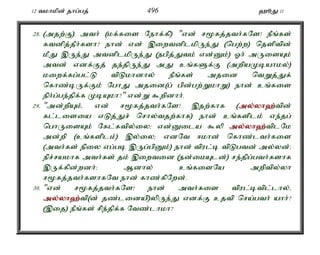 12 வமாமின் தாப்பத் 496 ஹூது 11
28. (அதற்கு) அவர் (மக்களை நோக்கி) "என் சமூகத்தவர்களே! நீங்கள்
கவனித்தீர்களா? நான் என் இறைவனிடமிருந்து (பெற்ற) தெளிவின்
மீது இருந்து அவனிடமிருந்து (நபித்துவம் என்னும்) ஓர் அருளையும்
அவன் எனக்குத் தந்திருந்து அது உங்களுக்கு (அறியமுடியாமல்)
மறைக்கப்பட்டு விடுமானால் நீங்கள் அதனை வெறுத்துக்
கொண்டிருக்கும் போது அதனை(ப் பின்பற்றுமாறு) நான் உங்களை
நிர்ப்பந்திக்க முடியுமா" என்று கூறினார்.
29. "அன்றியும், என் சமூகத்தவர்களே! இதற்காக (அல்லாஹ்வின்
கட்டளையை எடுத்துச் சொல்வதற்காக) நான் உங்களிடம் எந்தப்
பொருளையும் கேட்கவில்லை; என்னுடைய கூலி அல்லாஹ்விடமே
அன்றி (உங்களிடம்) இல்லை; எனவே ஈமான் கொண்டவர்களை
(அவர்கள் நிலை எப்படி இருப்பினும்) நான் விரட்டி விடுபவன் அல்லன்;
நிச்சயமாக அவர்கள் தம் இறைவனை (நன்மையுடன்) சந்திப்பவர்களாக
இருக்கின்றனர்; ஆனால் உங்களையே அறிவில்லா
சமூகத்தவர்களாகவே நான் காண்கிறேன்.
30. "என் சமூகத்தவர்களே! நான் அவர்களை விரட்டிவிட்டால்,
அல்லாஹ்வி(ன் தண்டனையி)லிருந்து எனக்கு உதவி செய்பவர் யார்?
(இதை) நீங்கள் சிந்திக்க வேண்டாமா?